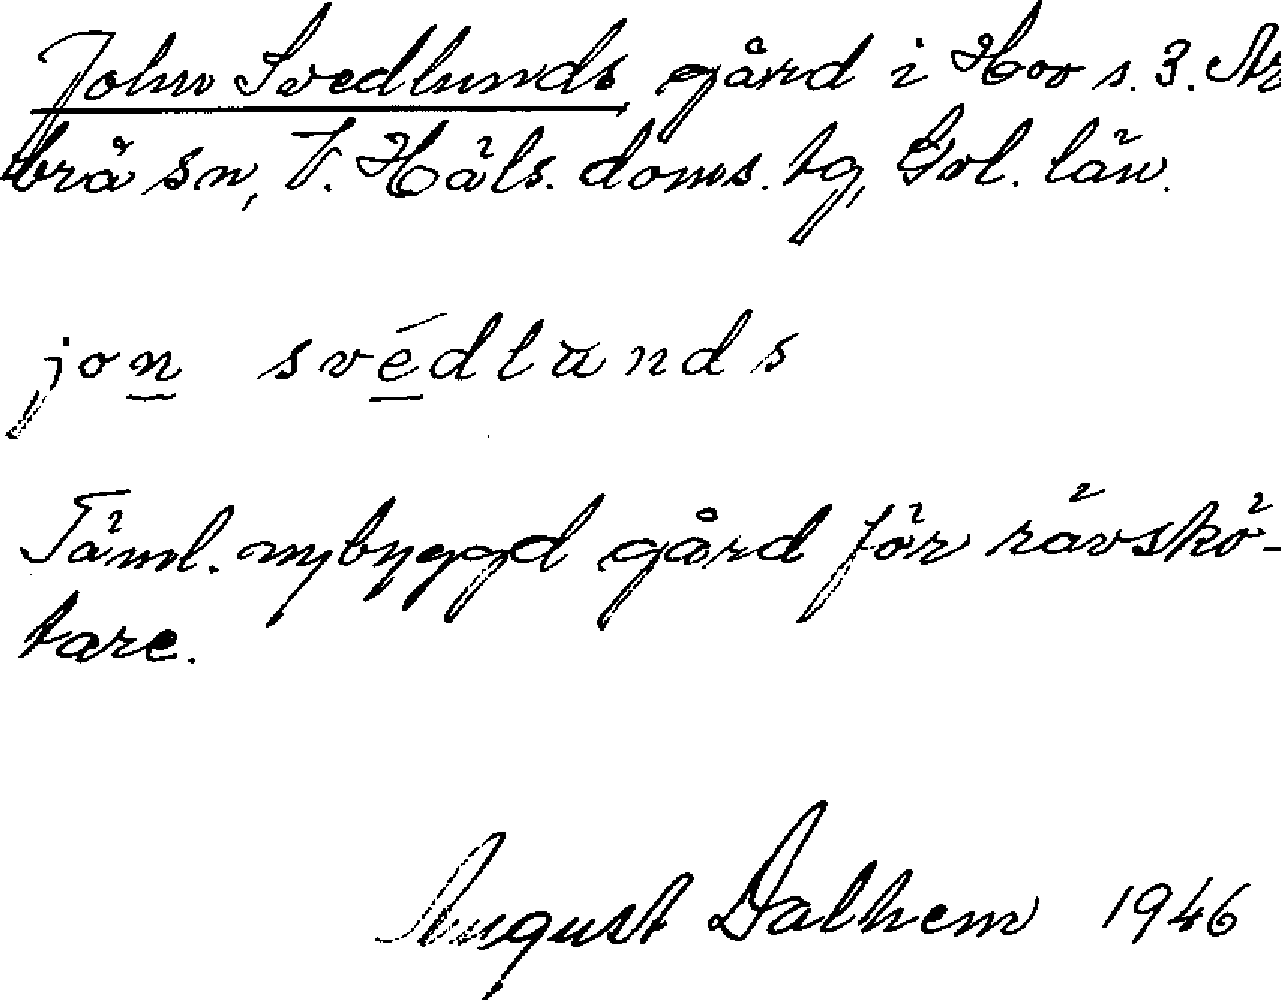 John Svedlunds gård i Hov s. 3. Ar
brå sn, V. Häls. doms. tg, Gvl. län.
jon svédlunds
Täml. nybyggd gård för rävskö-
tare.
August Dalhem 1946